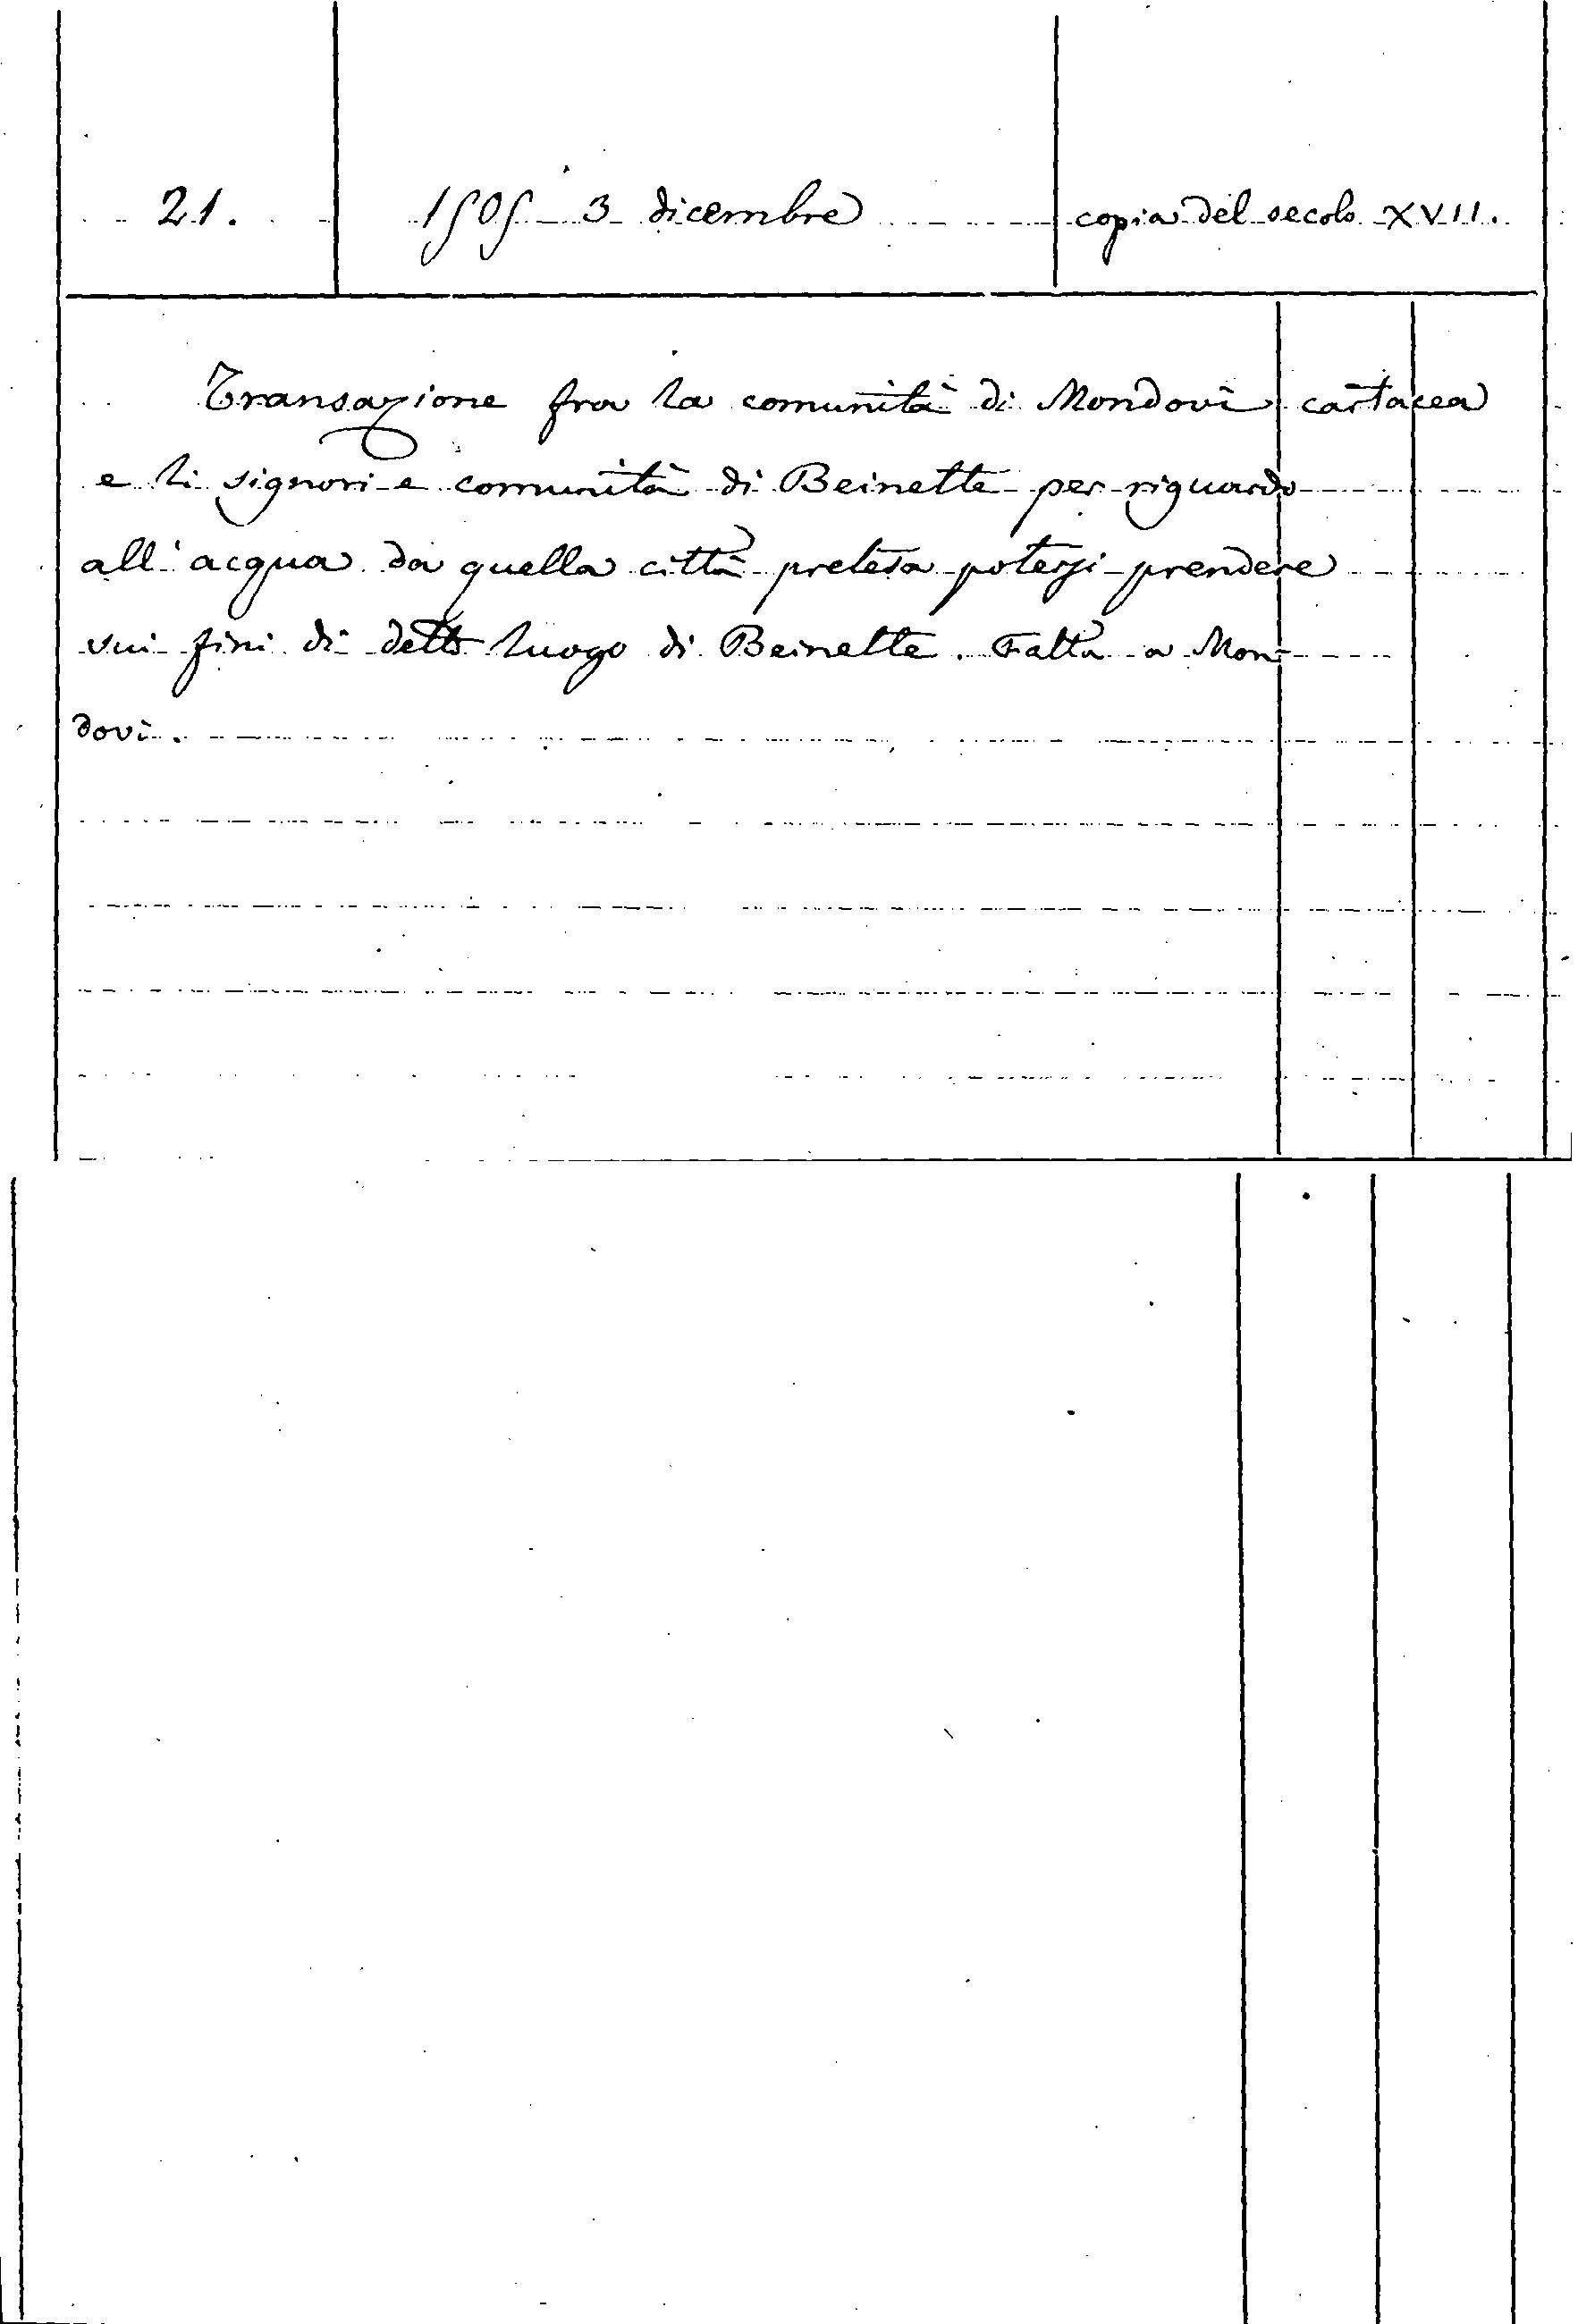 21. 1505 3 dicembre copia del secolo XVII.
Transazione fra la comunità di Mondovì cartacea
e li signori e comunità di Beinette per riguardo
all'acqua da quella città pretesa potersi prendere
sui fini di detto luogo di Beinette. Fatta a Mon-
dovì.